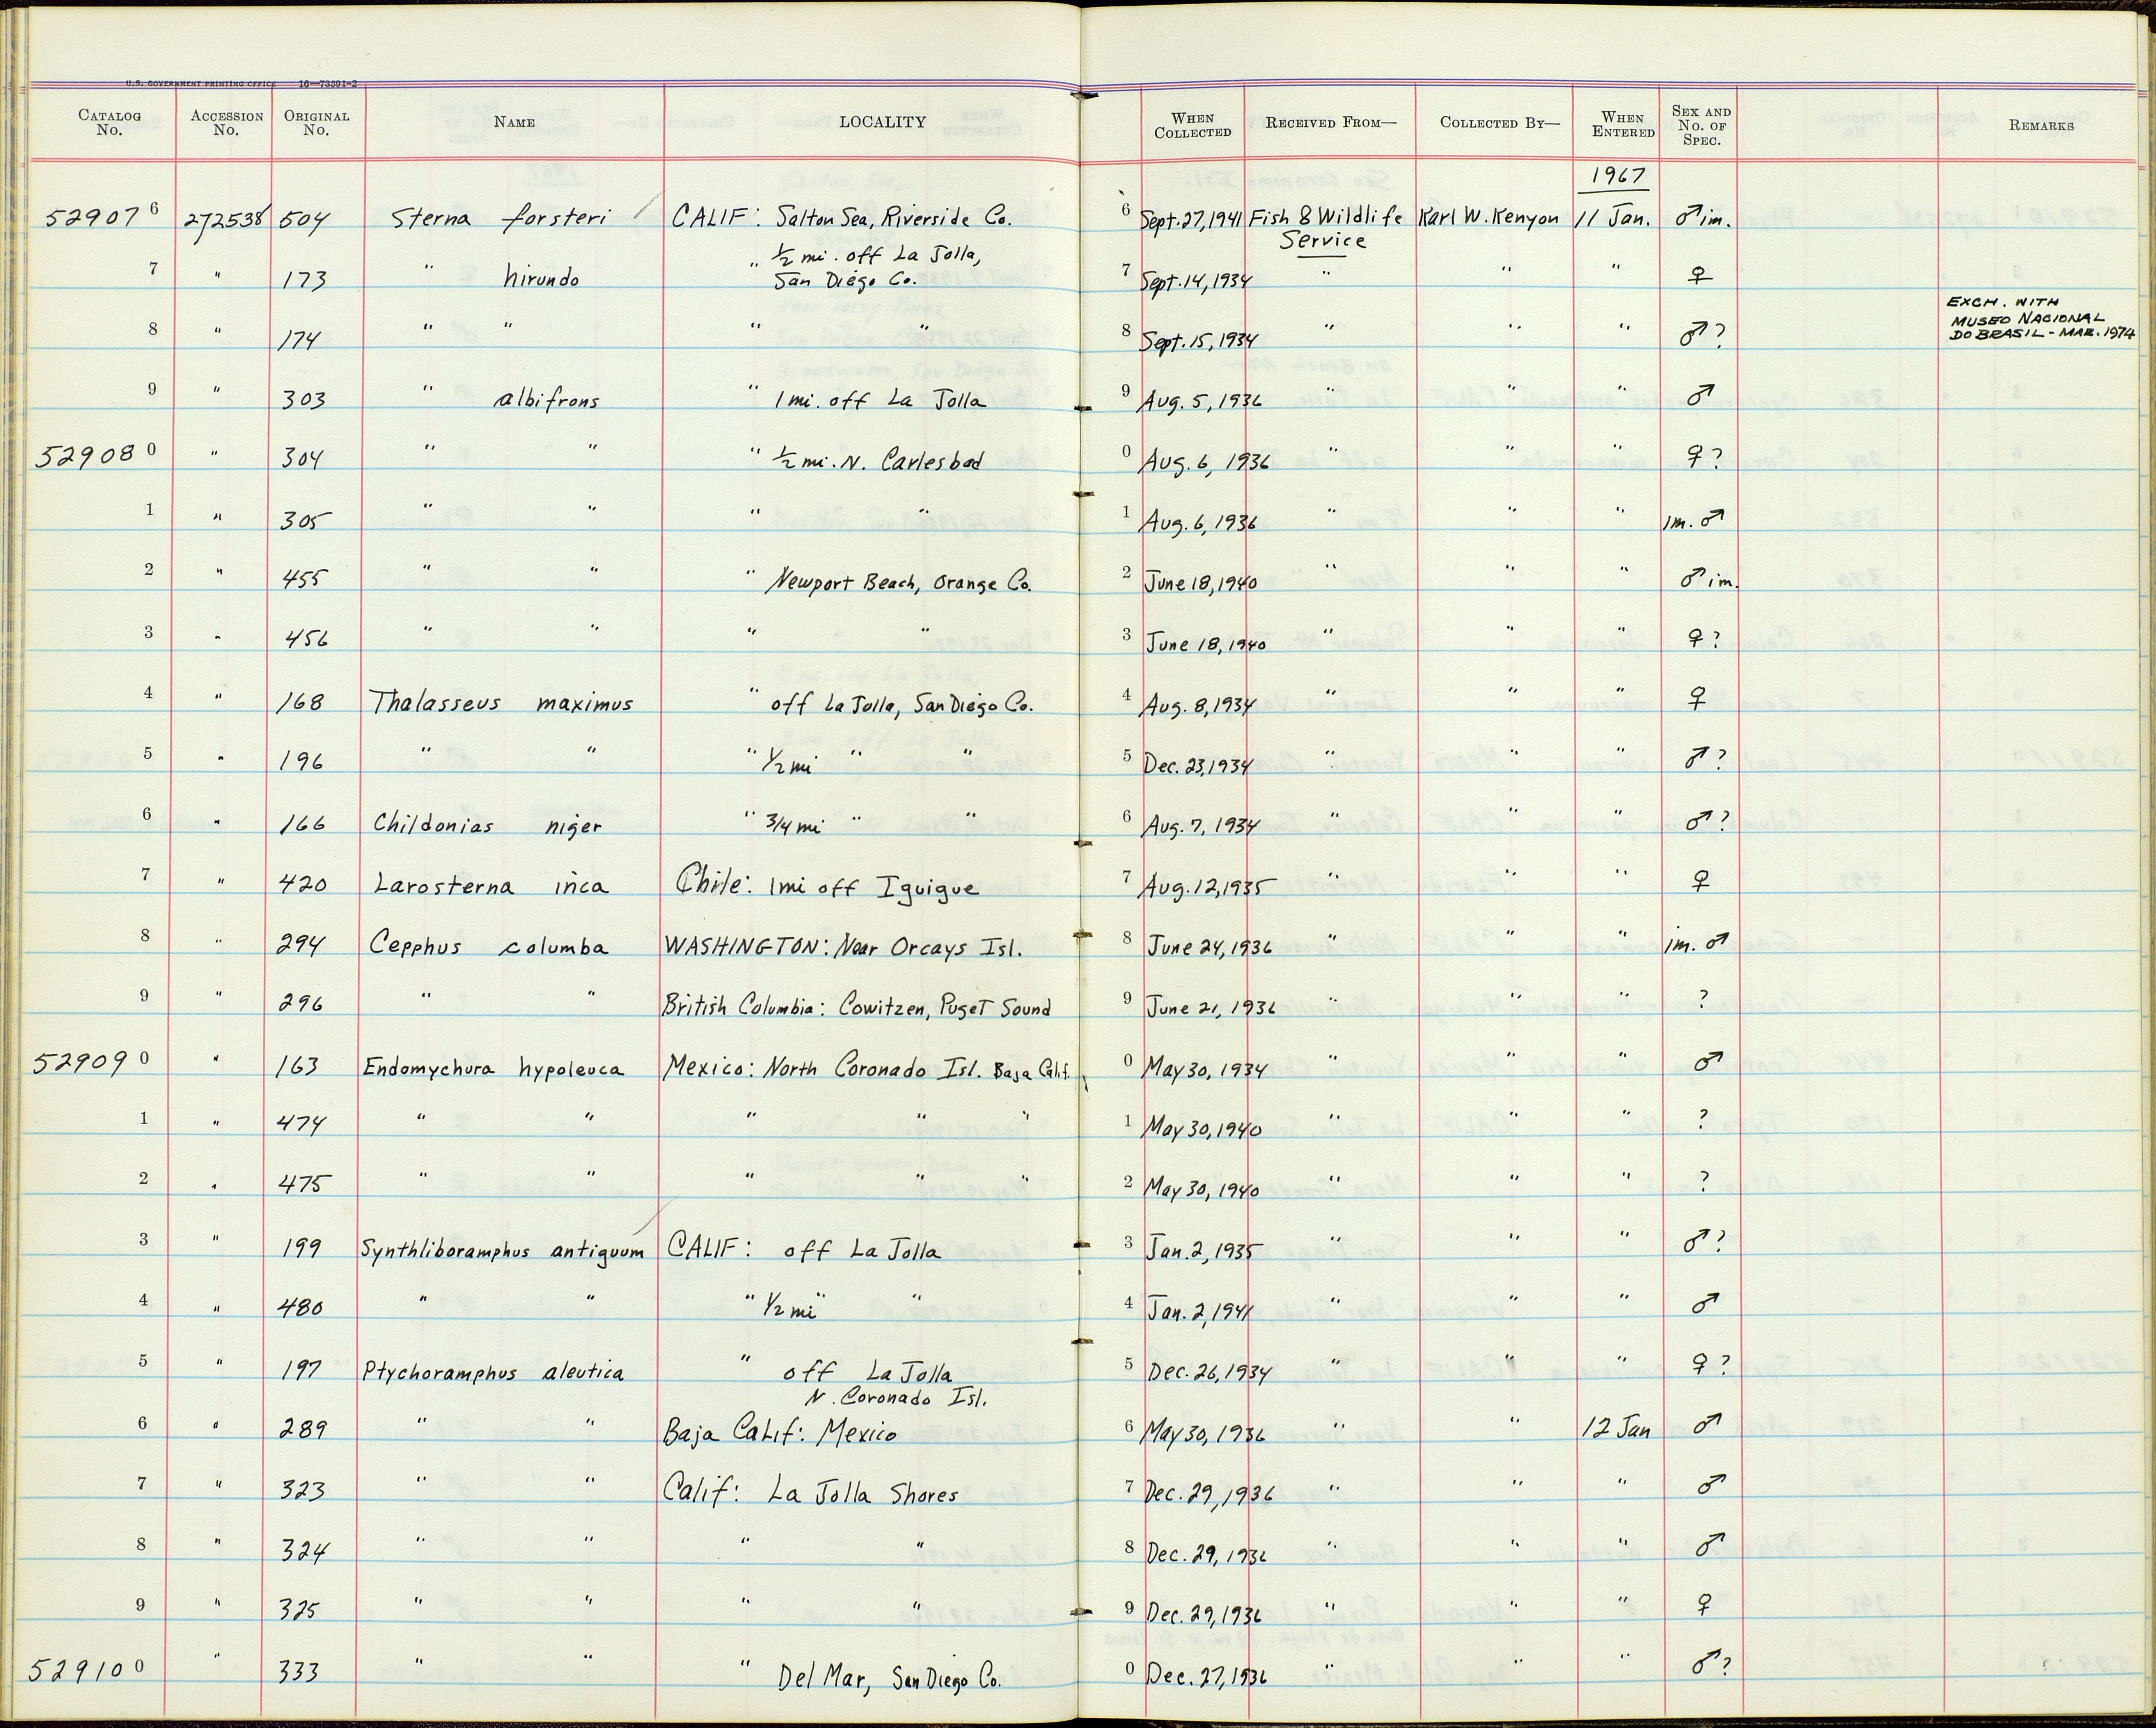 U.S. GOVERNMENT PRINTING OFFICE 16—73591-2
CATALOG No. ACCESSION No. ORIGINAL No. NAME LOCALITY WHEN COLLECTED RECEIVED FROM— COLLECTED BY— WHEN ENTERED SEX AND No. OF SPEC. REMARKS
1967
529076 272538 504 Sterna forsteri CALIF: Salton Sea, Riverside Co. 6 Sept. 27, 1941 Fish & Wildlife Service Karl W. Kenyon 11 Jan. ♂ im.
7 " 173 " hirundo " ½ mi. off La Jolla, San Diego Co. 7 Sept. 14, 1934 " " " ♀
8 " 174 " " " " 8 Sept. 15, 1934 " " " ♂? EXCH. WITH MUSEO NACIONAL DO BRASIL - MAR. 1974
9 " 303 " albifrons " 1 mi. off La Jolla 9 Aug. 5, 1936 " " " ♂
529080 " 304 " " " ½ mi. N. Carlesbad 0 Aug. 6, 1936 " " " ♀?
1 " 305 " " " " 1 Aug. 6, 1936 " " " im. ♂
2 " 455 " " " Newport Beach, Orange Co. 2 June 18, 1940 " " " ♂ im.
3 " 456 " " " " 3 June 18, 1940 " " " ♀?
4 " 168 Thalasseus maximus " off La Jolla, San Diego Co. 4 Aug. 8, 1934 " " " ♀
5 " 196 " " " ½ mi " " 5 Dec. 23, 1934 " " " ♂?
6 " 166 Childonias niger " 3/4 mi " " 6 Aug. 7, 1934 " " " ♂?
7 " 420 Larosterna inca Chile: 1 mi off Iguigue 7 Aug. 12, 1935 " " " ♀
8 " 294 Cepphus columba WASHINGTON: Near Orcays Isl. 8 June 24, 1936 " " " im. ♂
9 " 296 " " British Columbia: Cowitzen, Puget Sound 9 June 21, 1936 " " " ?
529090 " 163 Endomychura hypoleuca Mexico: North Coronado Isl. Baja Calif. 0 May 30, 1934 " " " ♂
1 " 474 " " " " " 1 May 30, 1940 " " " ?
2 " 475 " " " " " 2 May 30, 1940 " " " ?
3 " 199 Synthliboramphus antiguum CALIF: off La Jolla 3 Jan. 2, 1935 " " " ♂?
4 " 480 " " " ½ mi " " 4 Jan. 2, 1941 " " " ♂
5 " 197 Ptychoramphus aleutica " off La Jolla 5 Dec. 26, 1934 " " " ♀?
6 " 289 " " N. Coronado Isl. Baja Calif: Mexico 6 May 30, 1936 " " 12 Jan ♂
7 " 323 " " Calif: La Jolla Shores 7 Dec. 29, 1936 " " " ♂
8 " 324 " " " " 8 Dec. 29, 1936 " " " ♂
9 " 325 " " " " 9 Dec. 29, 1936 " " " ♀
529100 " 333 " " " Del Mar, San Diego Co. 0 Dec. 27, 1936 " " " ♂?